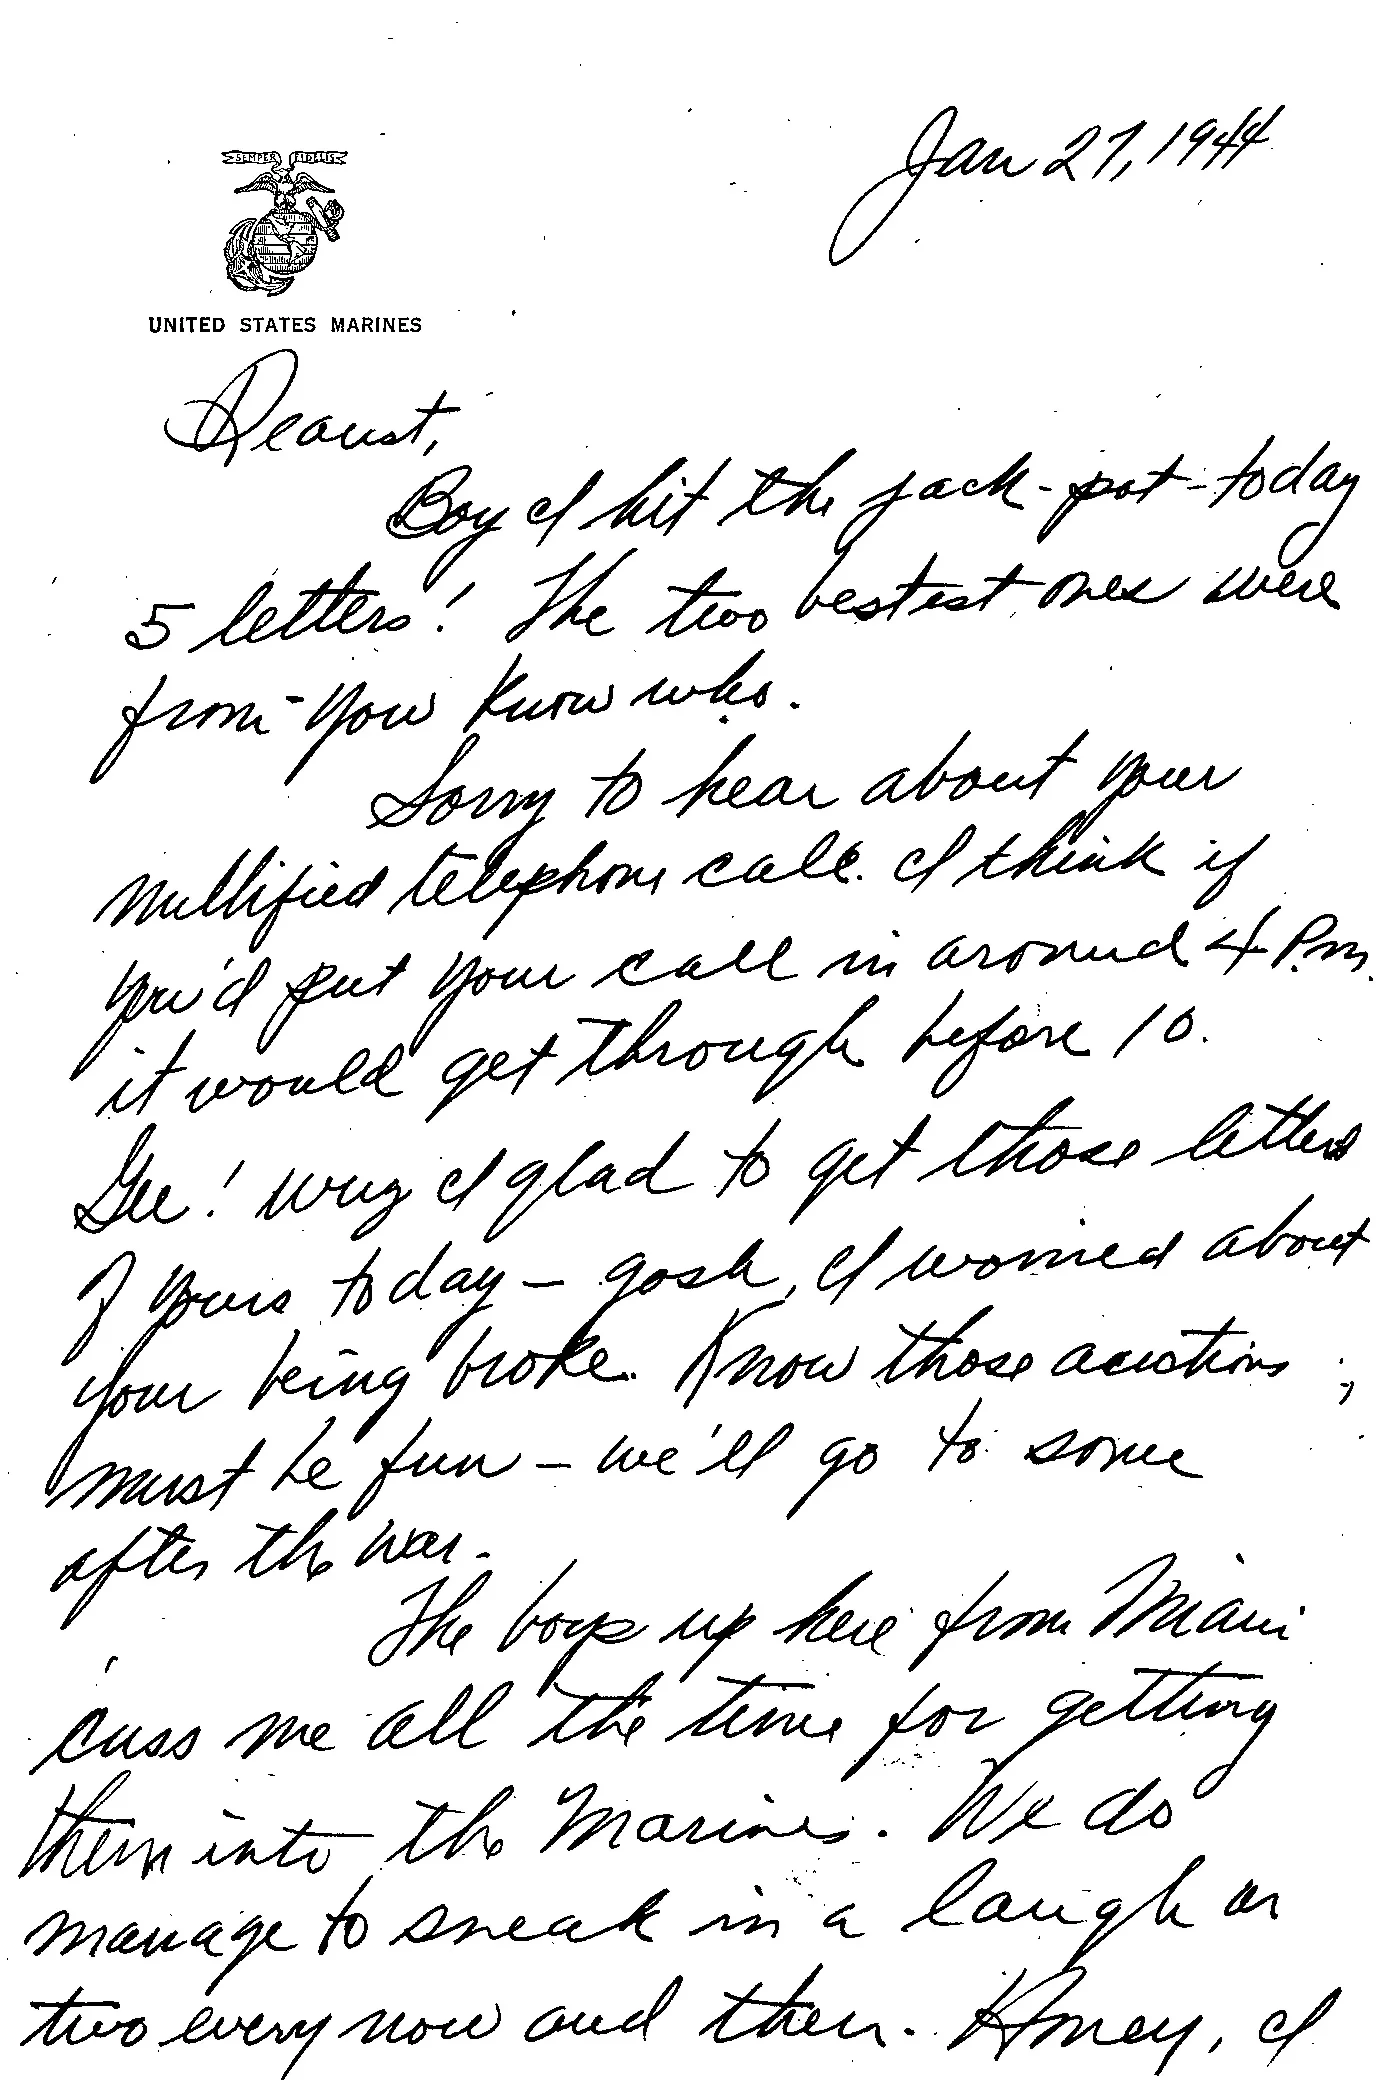 Jan 27, 1944
SEMPER FIDELIS
UNITED STATES MARINES
Dearest,
Boy I hit the jack-pot-today
5 letters! The two bestest ones were
from-you know who.
Sorry to hear about your
nullified telephone call. I think if
you'd put your call in around 4 P.m.
it would get through before 10.
Gee! wuz I glad to get those letters
of yours today — gosh, I worried about
your being broke. Know those auctions
must be fun — we'll go to some
after the war.
The boys up here from Miami
cuss me all the time for getting
them into the Marines. We do
manage to sneak in a laugh or
two every now and then. Honey, I